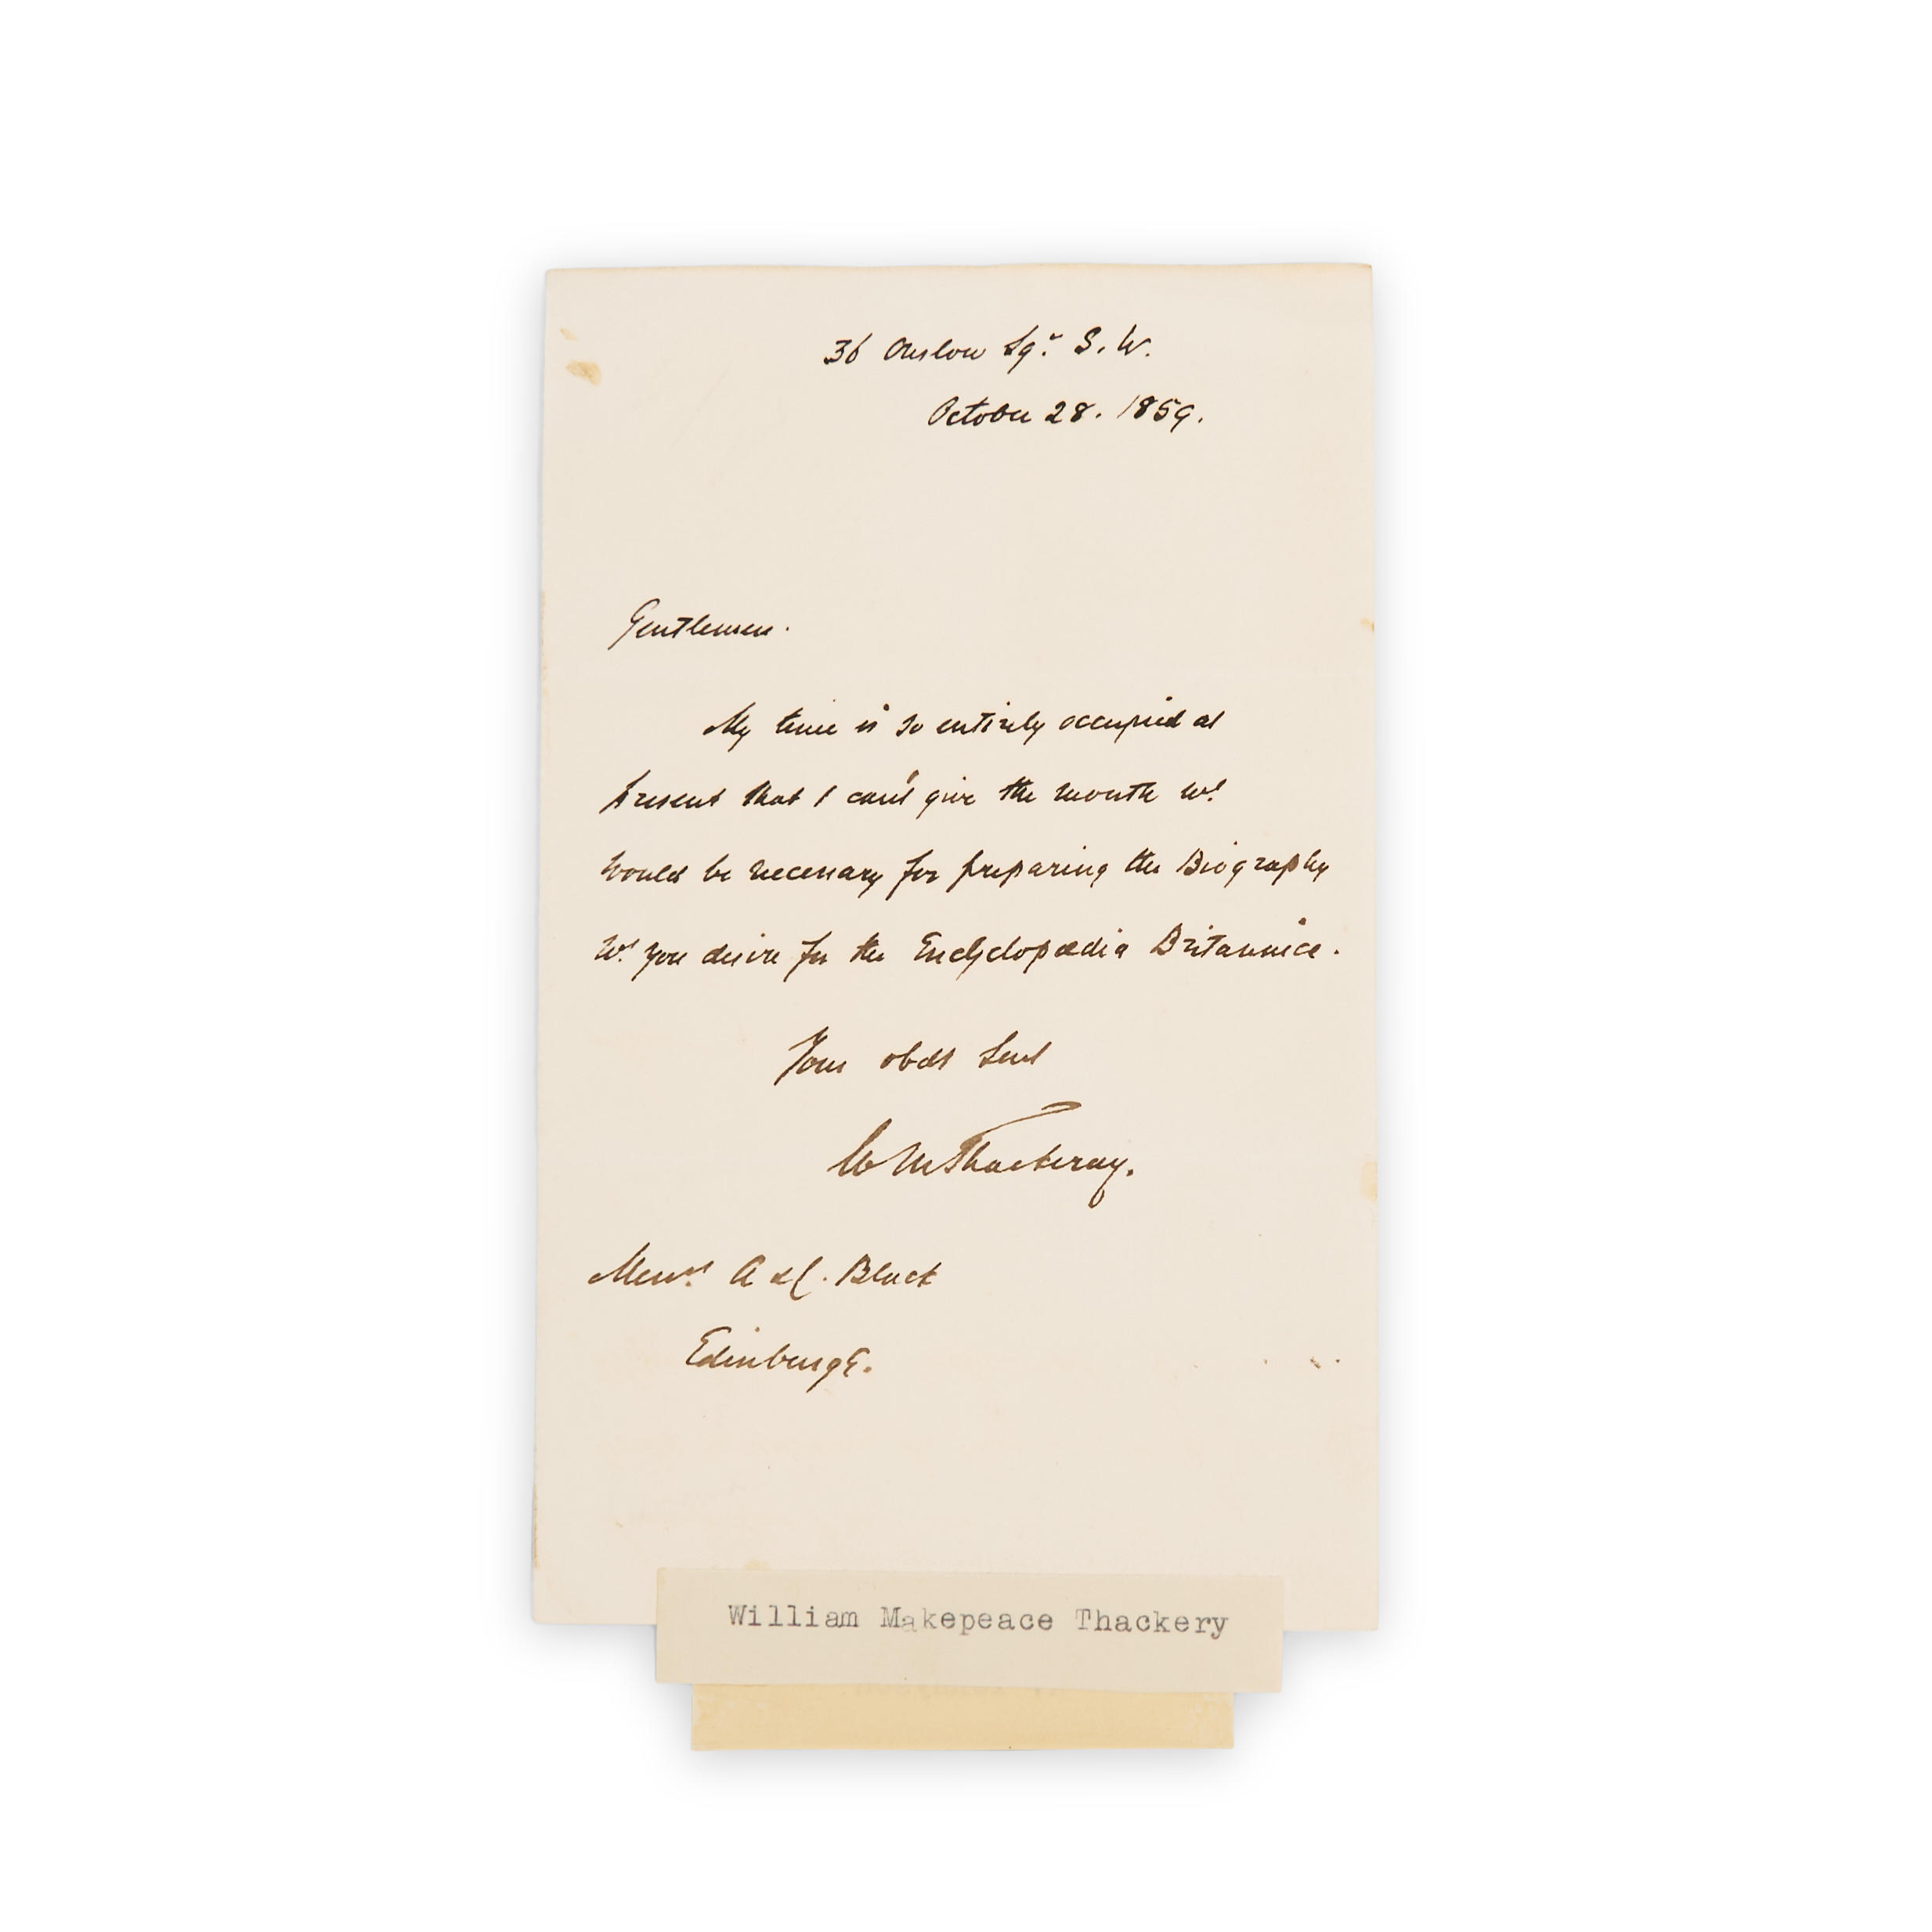 36 Onslow Sqr. S. W.
October 28. 1859.
Gentlemen.
My time is so entirely occupied at
present that I can't give the month wh.
would be necessary for preparing the Biography
wh. you desire for the Encyclopædia Britannica.
Your obdt Servt
W M Thackeray.
Messrs. A & C. Black
Edinburgh.
William Makepeace Thackery